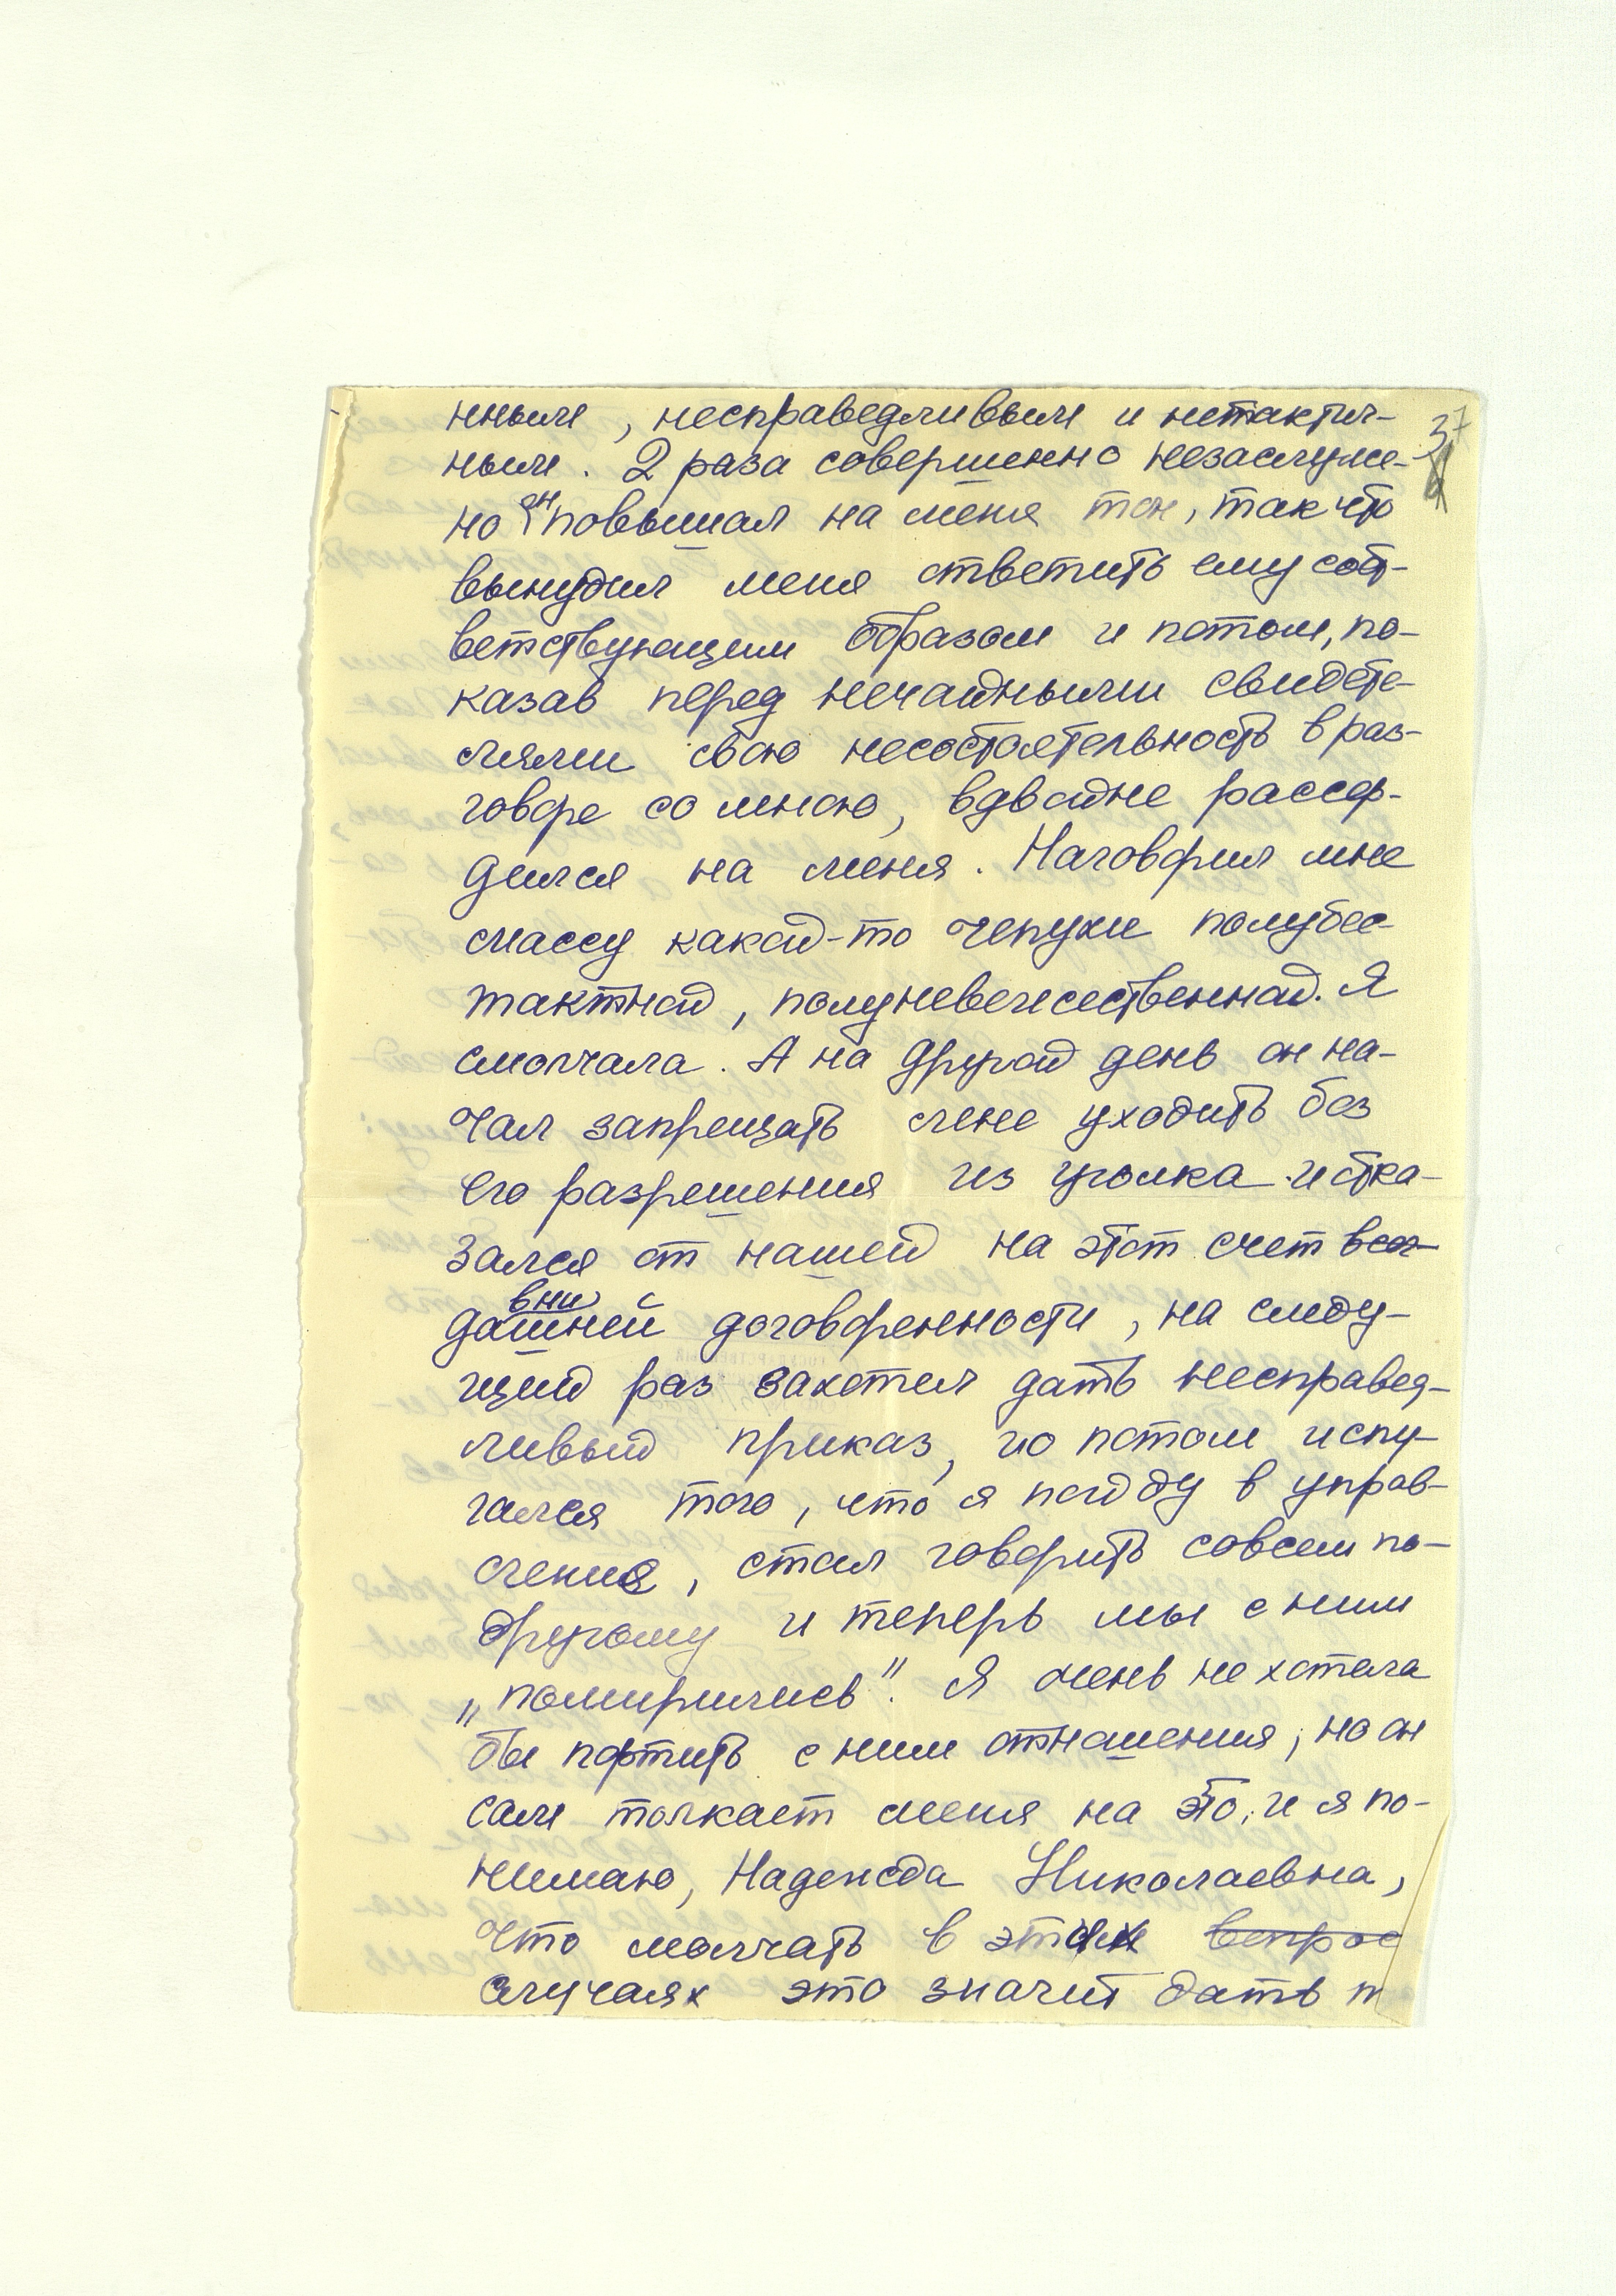 нным, несправедливым и нетактич-
37
ным. 2 раза совершенно незаслуже-
но он повышал на меня тон, так что
вынудил меня ответить ему соот-
ветствующим образом и потом, по-
казав перед нечаянными свидете-
лями свою несостоятельность в раз-
говоре со мною, вдвойне рассер-
дился на меня. Наговорил мне
массу какой-то чепухи полубес-
тактной, полуневежественной. Я
смолчала. А на другой день он на-
чал запрещать мне уходить без
его разрешения из уголка и отка-
зался от нашей на этот счет
давнишней договоренности, на следу-
щий раз захотел дать несправед-
ливый приказ, но потом испу-
гался того, что я пойду в управ-
ление, стал говорить совсем по-
другому и теперь мы с ним
„помирились". Я очень не хотела
бы портить с ним отношения, но он
сам толкает меня на это, и я по-
нимаю, Надежда Николаевна,
что молчать в этих вопрос
случаях это значит дать п